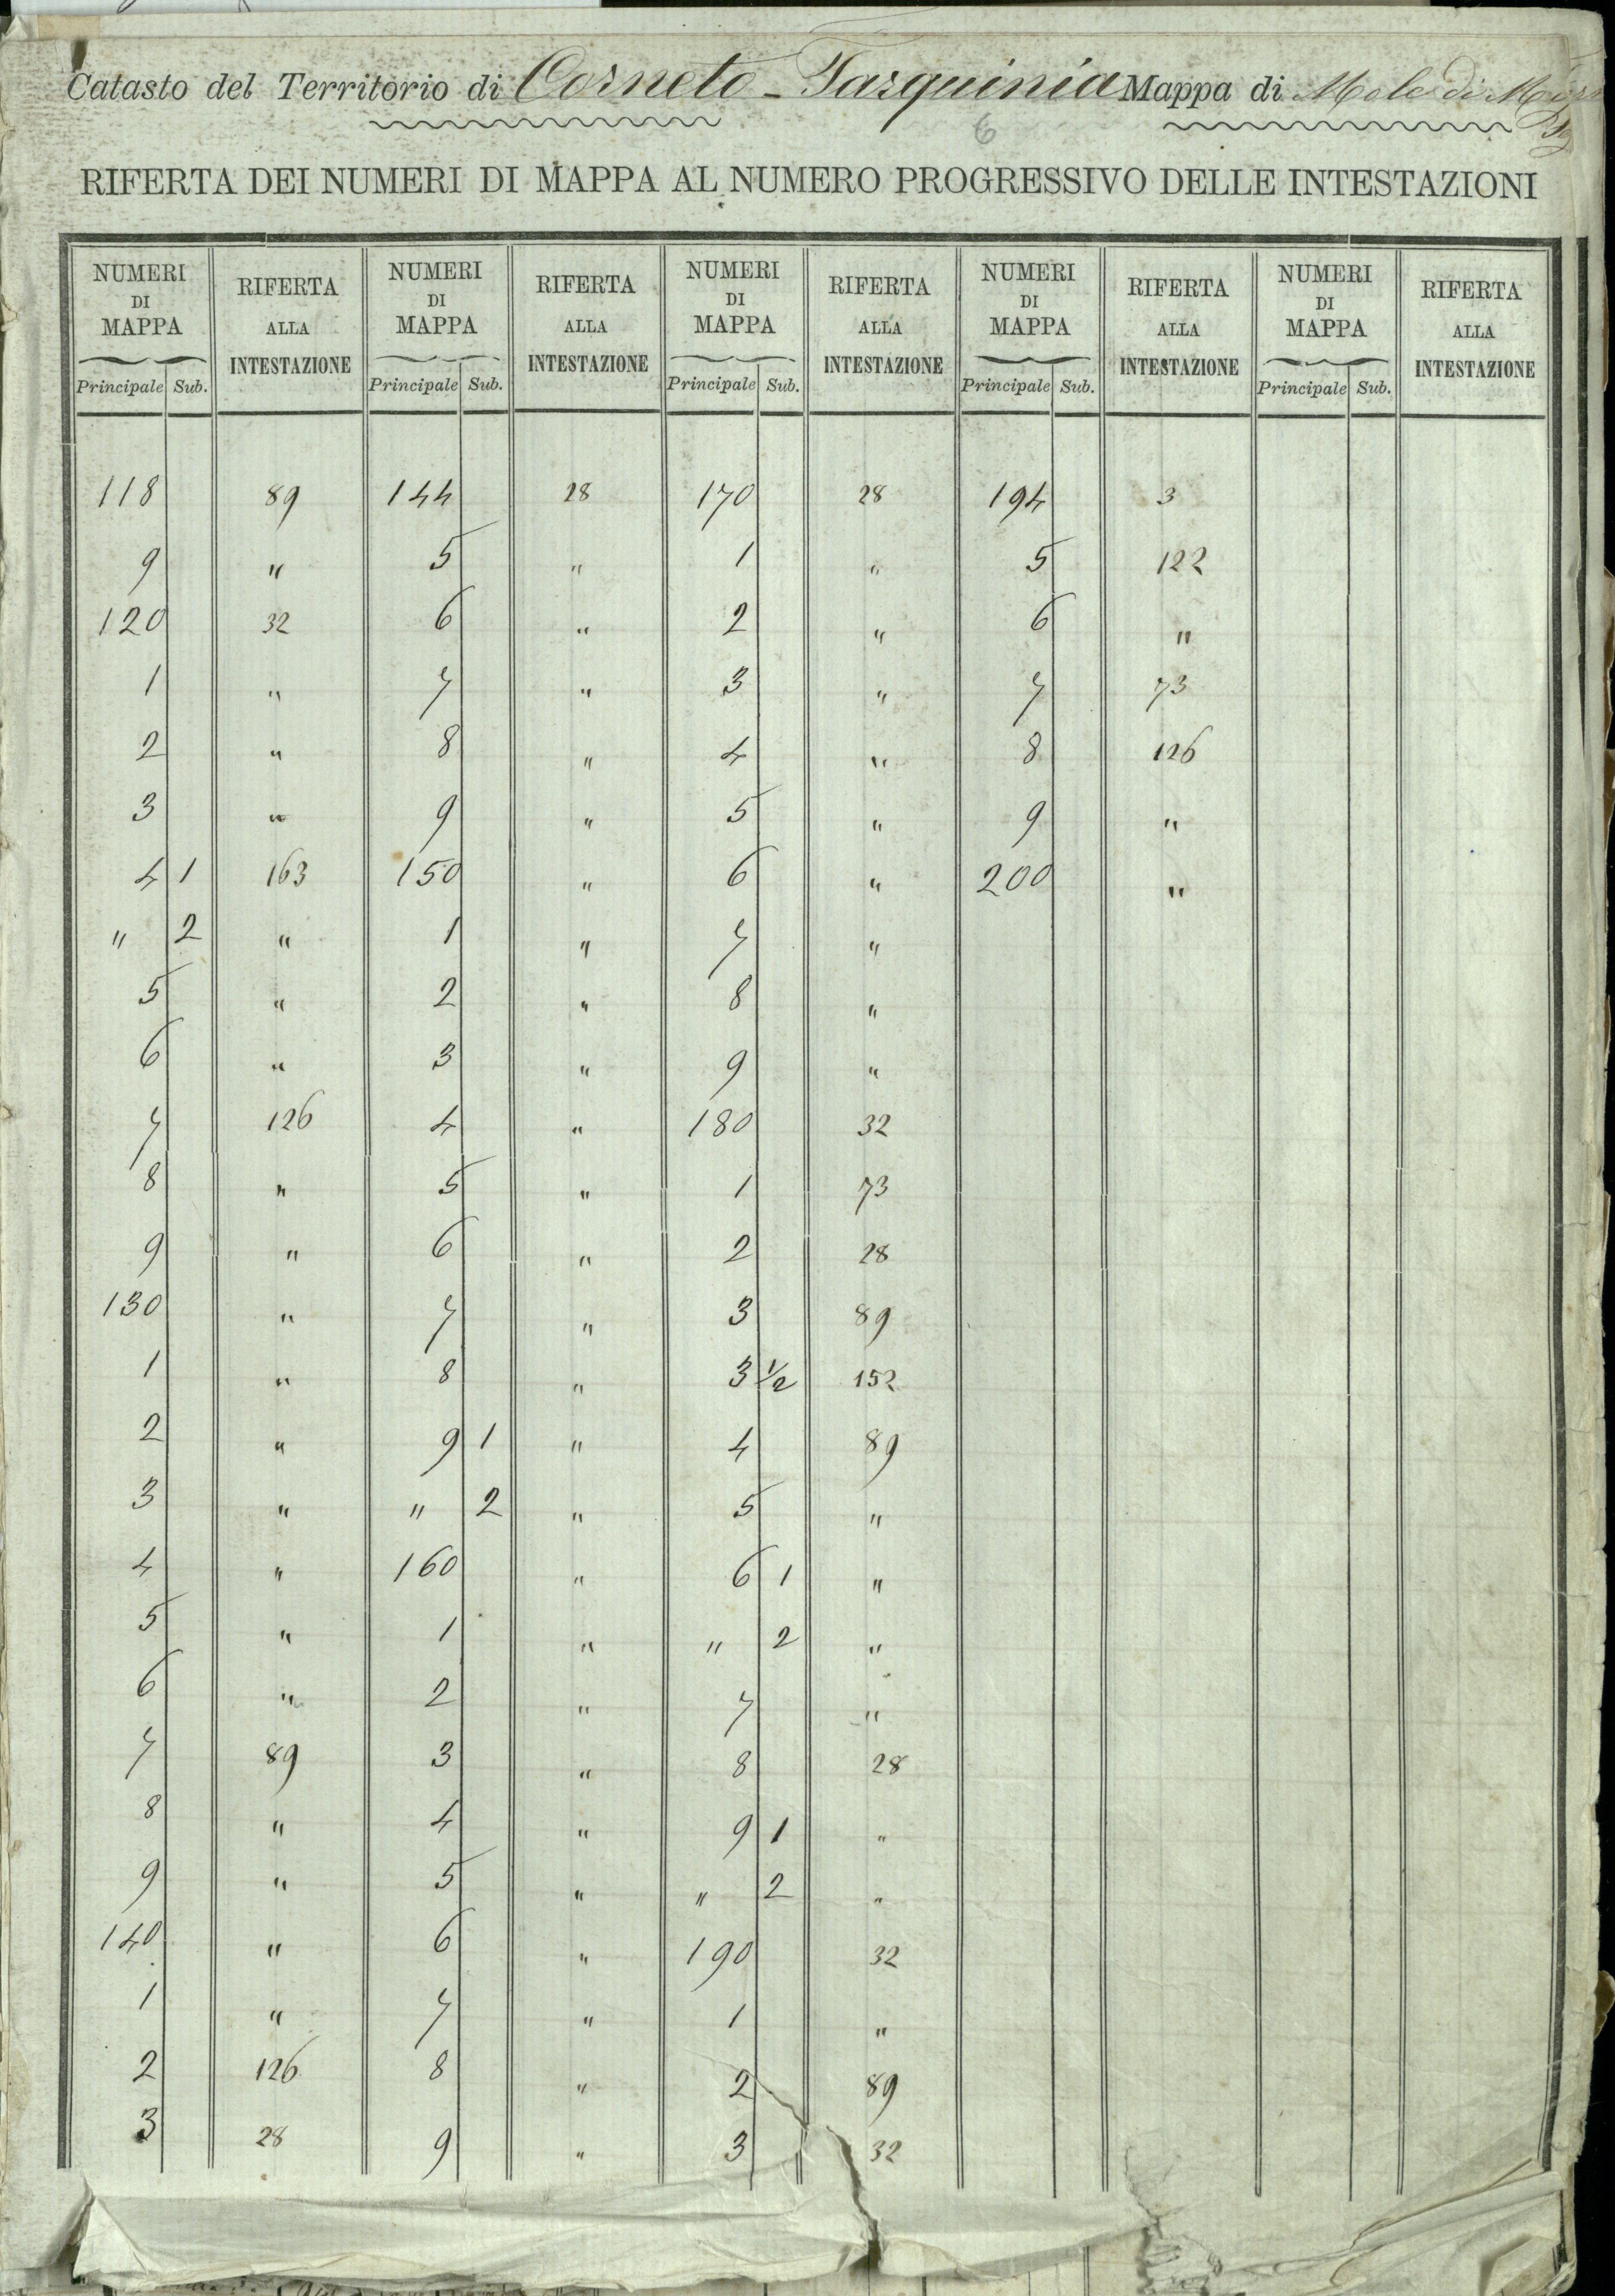 Catasto del Territorio di Corneto - Tarquinia Mappa di Mole di
6
RIFERTA DEI NUMERI DI MAPPA AL NUMERO PROGRESSIVO DELLE INTESTAZIONI
NUMERI DI MAPPA RIFERTA ALLA INTESTAZIONE NUMERI DI MAPPA RIFERTA ALLA INTESTAZIONE NUMERI DI MAPPA RIFERTA ALLA INTESTAZIONE NUMERI DI MAPPA RIFERTA ALLA INTESTAZIONE NUMERI DI MAPPA RIFERTA ALLA INTESTAZIONE
Principale Sub. Principale Sub. Principale Sub. Principale Sub. Principale Sub.
118 89 144 28 170 28 194 3
9 " 5 " 1 " 5 122
120 32 6 " 2 " 6 "
1 " 7 " 3 " 7 73
2 " 8 " 4 " 8 126
3 " 9 " 5 " 9 "
4 1 163 150 " 6 " 200 "
" 2 " 1 " 7 "
5 " 2 " 8 "
6 " 3 " 9 "
7 126 4 " 180 32
8 " 5 " 1 73
9 " 6 " 2 28
130 " 7 " 3 89
1 " 8 " 3 1/2 152
2 " 9 1 " 4 89
3 " " 2 " 5 "
4 " 160 " 6 1 "
5 " 1 " " 2 "
6 " 2 " 7 "
7 89 3 " 8 28
8 " 4 " 9 1 "
9 " 5 " " 2 "
140 " 6 " 190 32
1 " 7 " 1 "
2 126 8 " 2 89
3 28 9 " 3 32